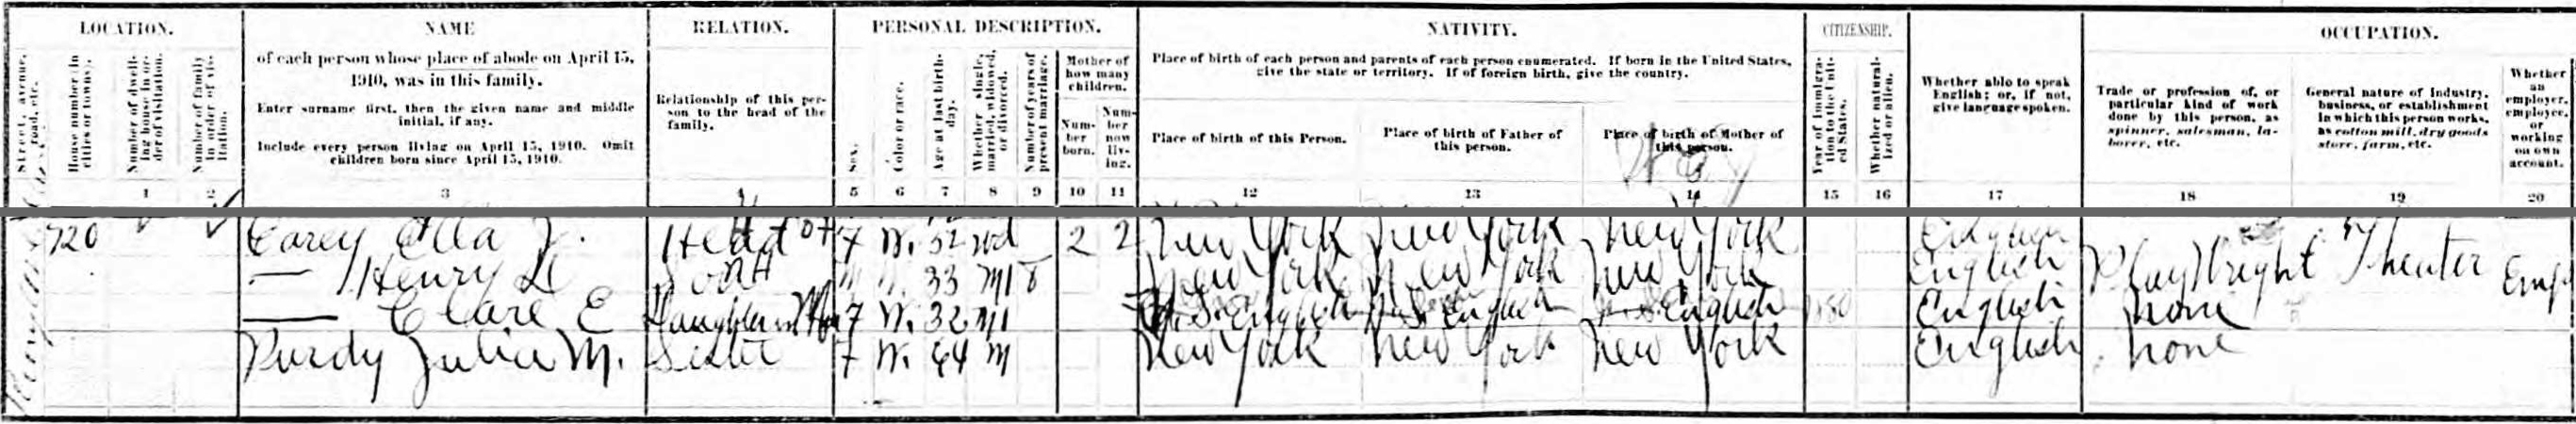 LOCATION.
Street, avenue, road, etc.
House number (in cities or towns).
Number of dwelling house in order of visitation.
Number of family in order of visitation.
1 2
NAME
of each person whose place of abode on April 15, 1910, was in this family.
Enter surname first, then the given name and middle initial, if any.
Include every person living on April 15, 1910. Omit children born since April 15, 1910.
3
RELATION.
Relationship of this person to the head of the family.
4
PERSONAL DESCRIPTION.
Sex.
Color or race.
Age at last birthday.
Whether single, married, widowed, or divorced.
Number of years of present marriage.
Mother of how many children.
Number born.
Number now living.
5 6 7 8 9 10 11
NATIVITY.
Place of birth of each person and parents of each person enumerated. If born in the United States, give the state or territory. If of foreign birth, give the country.
Place of birth of this Person.
Place of birth of Father of this person.
Place of birth of Mother of this person.
12 13 14
CITIZENSHIP.
Year of immigration to the United States.
Whether naturalized or alien.
15 16
Whether able to speak English; or, if not, give language spoken.
17
OCCUPATION.
Trade or profession of, or particular kind of work done by this person, as spinner, salesman, laborer, etc.
General nature of industry, business, or establishment in which this person works, as cotton mill, dry goods store, farm, etc.
Whether an employer, employee, or working on own account.
18 19 20
720 Carey Ella J. Head F W. 52 wd 2 2 New York New York New York English
— Henry D Son 33 M1 8 New York New York New York English Playwright Theater Emp
— Clare E Daughter F W. 32 M1 English English English English none
Purdy Julia M. Sister F W. 64 M New York New York New York English none